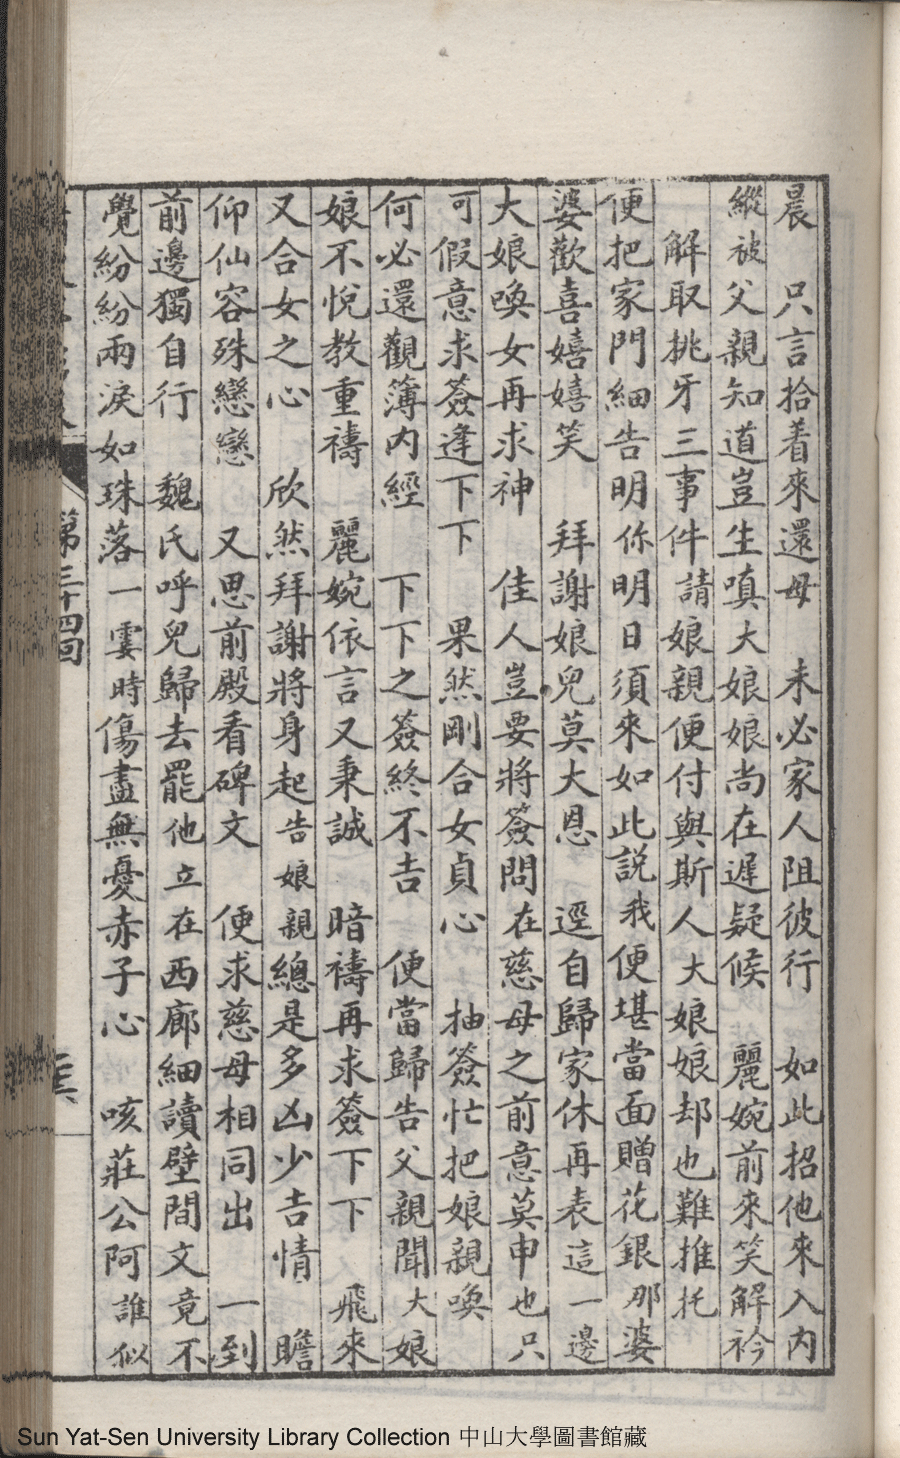 晨　只言拾着來還母　未必家人阻彼行　如此招他來入内
縱被父親知道豈生嗔大娘娘尚在遲疑候　麗婉前來笑解衿
解取挑牙三事件請娘親便付與斯人大娘娘却也難推托
便把家門細告明你明日須來如此説我便堪當面贈花銀那婆
婆歡喜嬉嬉笑　拜謝娘兒莫大恩　逕自歸家休再表這一邊
大娘喚女再求神　佳人豈要將簽問在慈母之前意莫申也只
可假意求簽逢下下　果然剛合女貞心　抽簽忙把娘親喚
何必還觀簿内經　下下之簽終不吉　便當歸告父親聞大娘
娘不悅教重禱　麗婉依言又秉誠　暗禱再求簽下下　飛來
又合女之心　欣然拜謝將身起告娘親總是多凶少吉情　瞻
仰仙容殊戀戀　又思前殿看碑文　便求慈母相同出　一到
前邊獨自行　魏氏呼兒歸去罷他立在西廊細讀壁間文竟不
覺紛紛兩淚如珠落一霎時傷盡無憂赤子心　咳莊公阿誰似
第三十四回
Sun Yat-Sen University Library Collection 中山大學圖書館藏